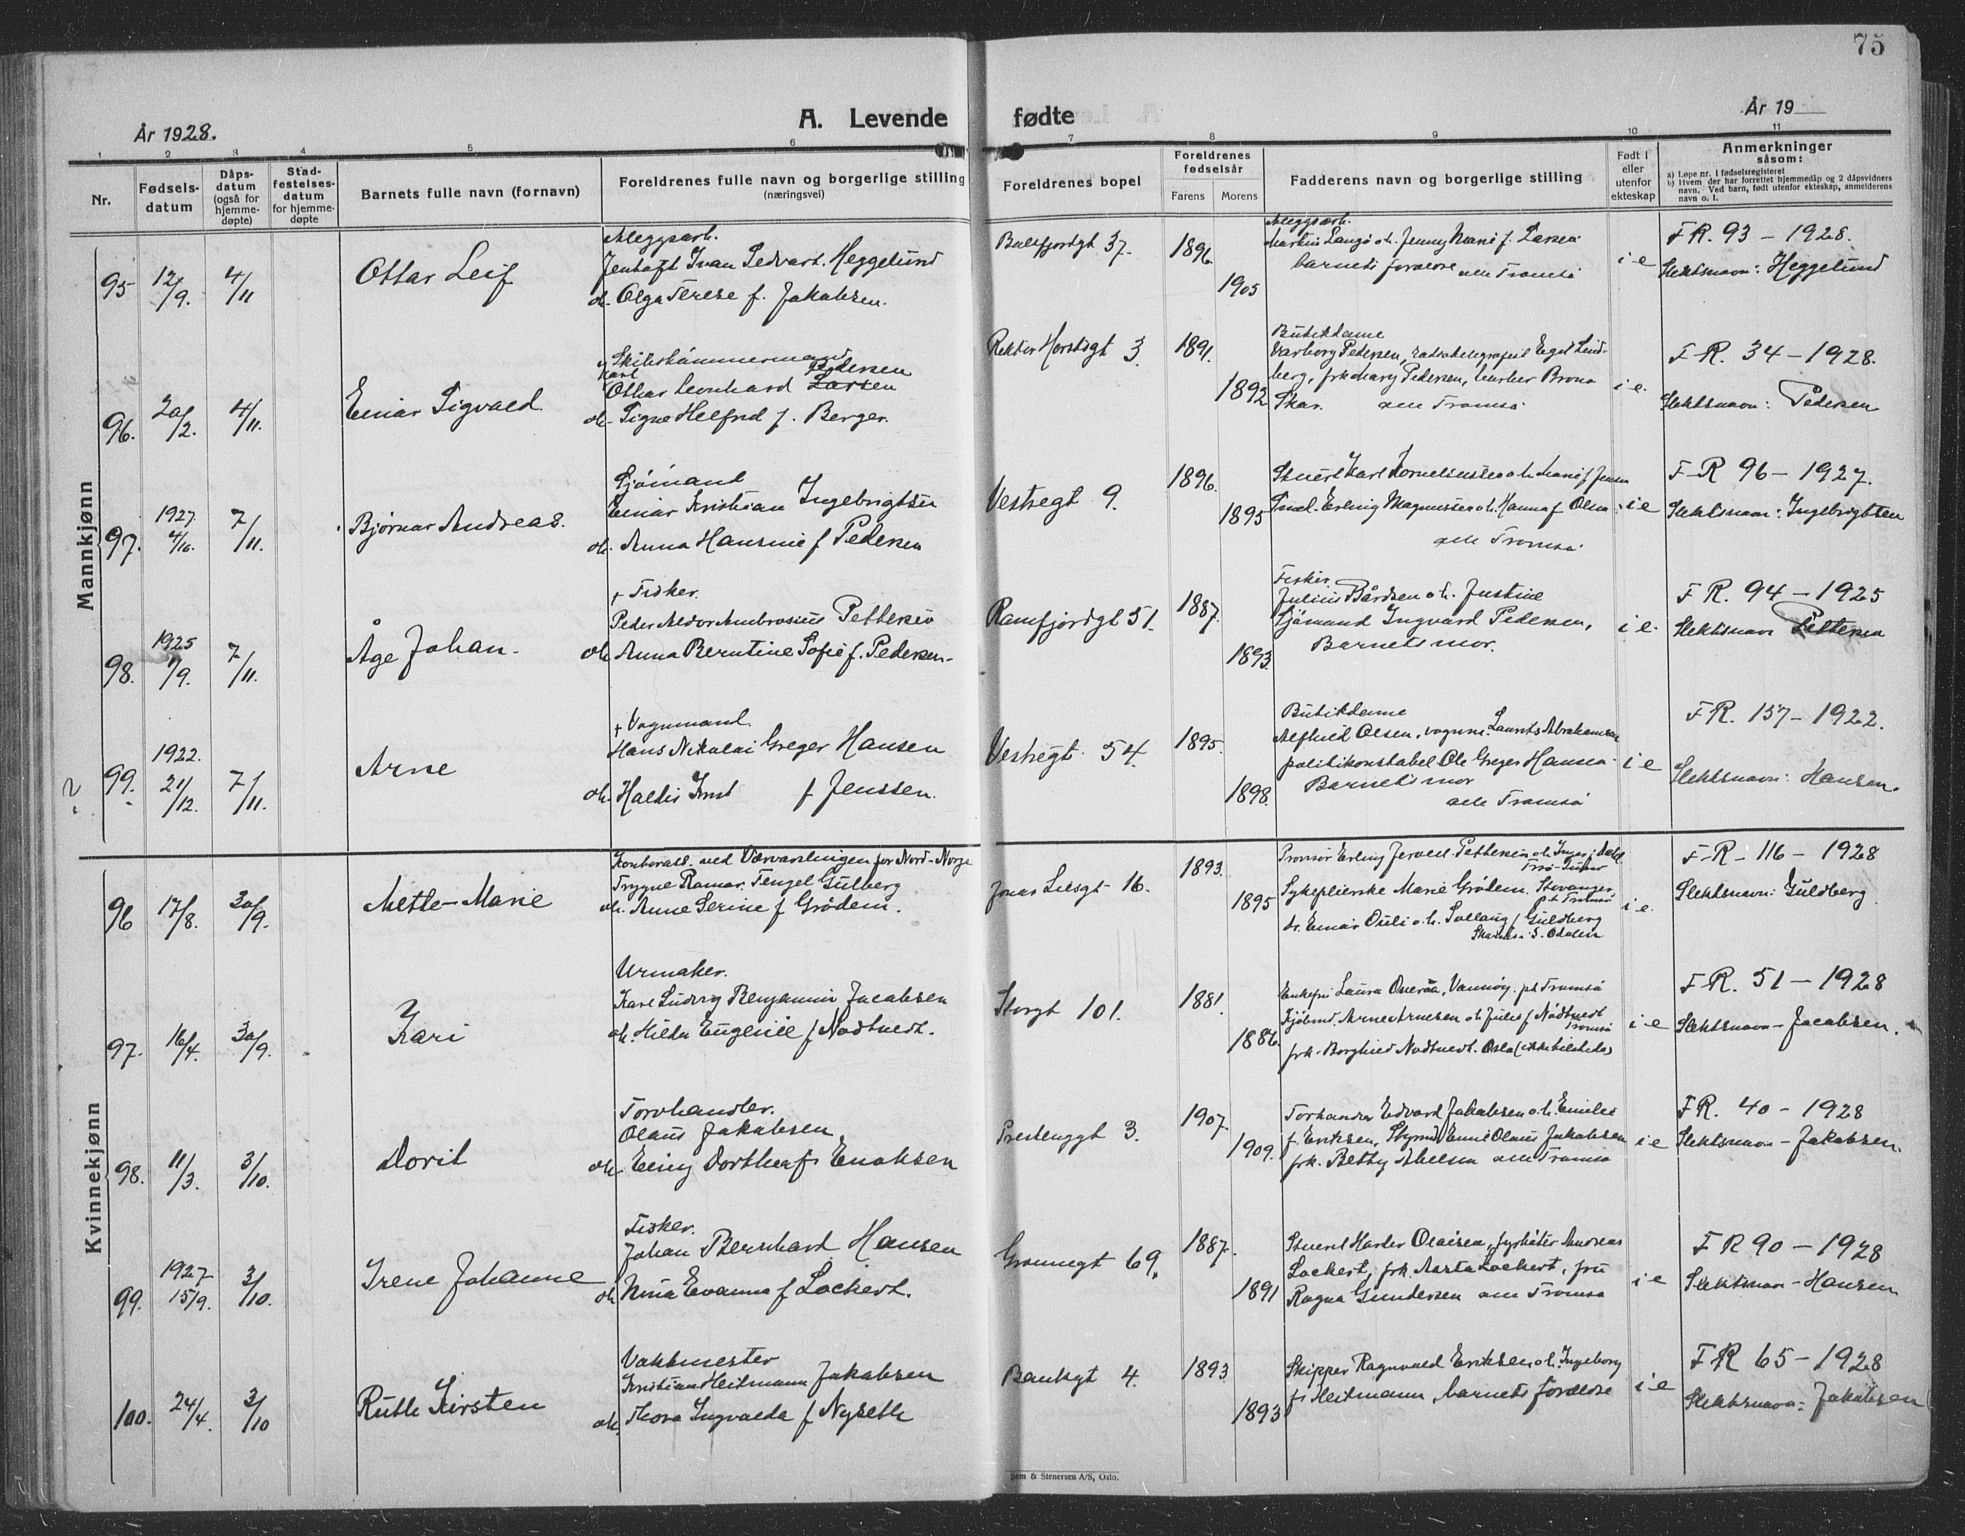 75
År 1928.
A. Levende fødte
År 19
1 2 3 4 5 6 7 8 9 10 11
Nr.
Fødsels-
datum
Dåps-
datum
(også for
hjemme-
døpte)
Stad-
festelses-
datum
for hjemme-
døpte
Barnets fulle navn (fornavn)
Foreldrenes fulle navn og borgerlige stilling
(næringsvei)
Foreldrenes bopel
Foreldrenes
fødselsår
Farens Morens
Fadderens navn og borgerlige stilling
Født i
eller
utenfor
ekteskap
Anmerkninger
såsom:
a) Løpe nr. i fødselsregisteret
b) Hvem der har forrettet hjemmedåp og 2 dåpsvidners
navn. Ved barn, født utenfor ekteskap, anmelderens
navn o. l.
Mannkjønn
95 12/9. 4/11 Ottar Leif
Anleggsarb.
Ivan Edvard. Heggelund
oh. Olga Terese f. Jakobsen.
Balsfjordgt 37. 1896. 1905
Anleggsarb.
oh. Jenny Marie f. Larsen
barnets foreldre alle Tromsø
i e
F.R. 93 - 1928.
Slektsnavn: Heggelund
96. 20/2. 4/11. Einar Sigvald
Karl Pedersen
Ottar Leonhard Larsen
oh. Signe Helfrid f. Berger.
Rektor Horstsgt 3. 1891. 1892
Butikdame
Varborg Pedersen, radiotelegrafist Egel Lind-
berg, frk Mary Pedersen, Bruno
Skar. alle Tromsø
i e.
F.R. 34 - 1928.
Slektsnavn: Pedersen
97. 1927. 4/10. 7/11. Bjørnar Andreas.
Sjømand
Einar Kristian Ingebrigtsen
oh. Anna Hansine f Pedersen
Vestregt 9. 1896. 1895
Stuert Karl Korneliussen o.h. Marie f Jensen
Erling Magnussen o.h. Hanna f Olsen
alle Tromsø.
i e
F-R 96 - 1927.
Slektsnavn: Ingebrigtsen
98. 1925 1/9. 7/11. Åge Johan.
+ Fisker.
Peder Aldor Ambrosius Pettersen
oh. Anna Berntine Sofie f. Pedersen.
Ramfjordgt 51. 1887. 1893.
Fisker.
Julius Bårdsen o.h. Justine
Sjømand Ingvard Pedersen,
Barnets mor.
i e.
F R. 94 - 1925
Slektsnavn Pettersen
99. 1922. 21/12. 7/11. Arne
+ Vognmand.
Hans Nikolai Greger Hansen
oh. Haldis f Jenssen.
Vestregt. 54. 1895. 1898.
Butikdame
Alfhild Olsen, vognm. Laurits Abrahamsen
politikonstabel Ole Greger Hansen
Barnets mor
alle Tromsø
i e
F R. 157 - 1922.
Slektsnavn: Hansen.
Kvinnekjønn
96 17/8. 30/9. Mette-Marie
Kontorass. ved Værvarslingen for Nord-Norge
Trygve Ramar Tengel Gulberg
oh. Anne Serine f Grødem.
Jonas Liesgt - 16. 1893. 1895
Provisor Erling Jervell Pettersen o.h.
Sykepleierske Marie Grødem. Stavanger,
p.t. Tromsø
dr. Einar Oseli o.h. Solbaug f Guldberg
S. Odalen
i e.
F-R - 116 - 1928
Slektsnavn: Guldberg
97. 16/4. 30/9. Kari
Urmaker.
Karl Ludvig Benjamin Jacobsen
oh. Hilda Eugenie f Nodtvedt.
Storgt 101. 1881. 1886.
Enkefru Laura Overåa, Vannøy. pt Tromsø
Kjøbmd. Arne Arnesen o.h. Julie f Nødtvedt
Tromsø
frk. Borghild Nodtvedt. Oslo (ikke tilstede)
i e
F.R. 51 - 1928
Slektsnavn - Jacobsen.
98. 11/3. 3/10. Dorit
Torvhandler.
Olaus Jakobsen
oh. Elling Dorthea f. Enoksen
Prestenggt 3. 1907. 1909.
Torhandler Edvard Jakobsen o.h. Emilie
f. Eriksen, Olaus Jakobsen
frk. Betty Abelsen alle Tromsø
i e
F R. 40 - 1928
Slektsnavn - Jakobsen.
99. 1927 15/9. 3/10. Irene Johanne
Fisker.
Johan Bernhard Hansen
oh Nina Evanna f Lockert.
Grønnegt 69. 1887. 1891
Stuert Harder Olaisen, fyrbøter Andreas
Lockert, frk. Aasta Lockert, fru
Ragna Gundersen alle Tromsø
i e
F R 90 - 1928
Slektsnavn - Hansen
100. 24/4. 3/10 Ruth Kirsten
Vaktmester
Kristian Heitmann Jakobsen
oh. Thora Ingvalda f Nyseth
Bankgt 4. 1893 1893
Skipper Ragnvald Eriksen o.h. Ingeborg
f. Heitmann, barnets foreldre
i e
F R 65 - 1928
Slektsnavn: Jakobsen
Sem & Stenersen A/S, Oslo.